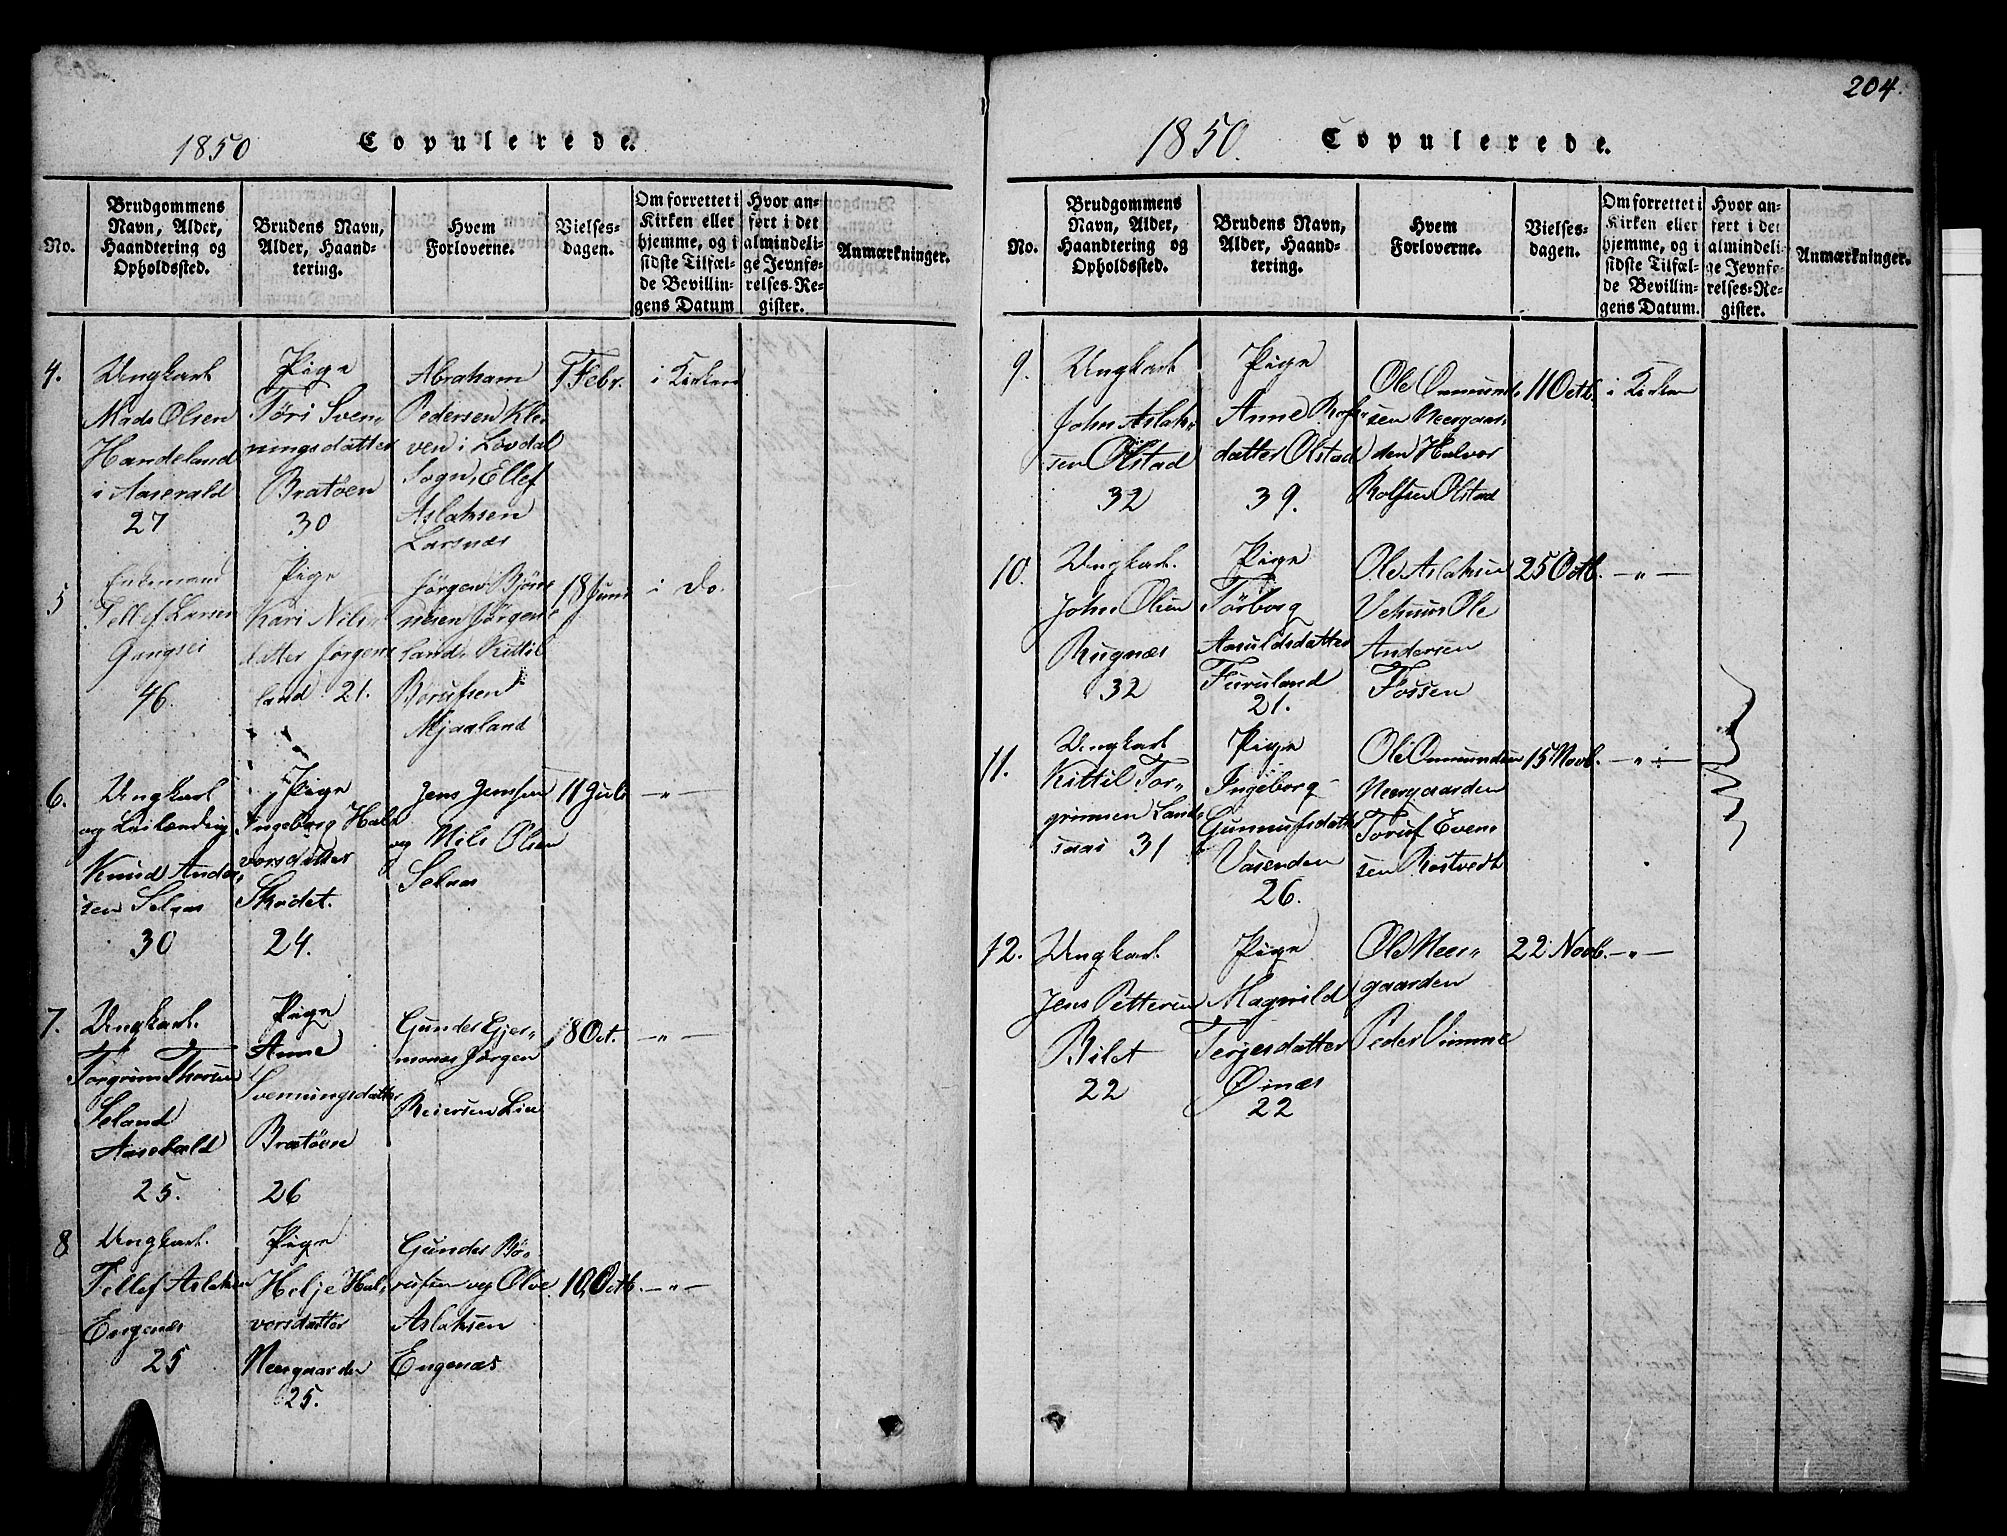 204.
1850 Copulerede.
No.
Brudgommens
Navn, Alder,
Haandtering og
Opholdssted.
Brudens Navn,
Alder, Haand-
tering.
Hvem
Forloverne.
Vielses-
dagen.
Om forrettet i
Kirken eller
hjemme, og i
sidste Tilfæl-
de Bevillin-
gens Datum
Hvor an-
ført i det
almindeli-
ge Jevnfø-
relses-Re-
gister.
Anmærkninger.
4.
Ungkarl
Mads Olsen
Handeland
i Aaserald
27
Pige
Töri Sven-
ningsdatter
Bratöen
30
Abraham
Pedersen Klei-
ven i Lövdal
Sogn, Ellef
Aslaksen
Larsnæs
7 Febr.
i Kirken
5
Enkemand
Tellef Larsen
46.
Pige
Kari Nils-
datter Jörgens-
land 21.
Jörgen Björn-
nesen Jörgens-
land, Kittil
Börufsen
Mjaaland
18 Juni
i Do.
6.
Ungkarl
og
Knud Ander-
sen Selaas
30
Pige
Ingeborg Hal-
vorsdatter
Skodet.
24.
Jens Jenssen
og Nils Olsen
Selaas
11 Juli
— " —
7.
Ungkarl.
Torgrim Thorsen
Seland
Aaserald
25.
Pige
Anne
Svenningsdatter
Bratöen
26
Gunder Gjer-
monæs Jörgen
Reiersen Lie
18 Oct.
— " —
8
Ungkarl.
Tellef Aslaksen
Engenæs
25
Pige
Helje Hal-
vorsdatter
Neergaarden
25.
Gunder Bö-
rufsen og Olve
Aslaksen
Engenæs
10 Octb.
— " —
1850. Copulerede.
No.
Brudgommens
Navn, Alder,
Haandtering og
Opholdssted.
Brudens Navn,
Alder, Haand-
tering.
Hvem
Forloverne.
Vielses-
dagen.
Om forrettet i
Kirken eller
hjemme, og i
sidste Tilfæl-
de Bevillin-
gens Datum.
Hvor an-
ført i det
almindeli-
ge Jevnfø-
relses-Re-
gister.
Anmærkninger.
9.
Ungkarl
John Aslak-
sen Olstad
32
Pige
Anne Rolfs-
datter Olstad
39.
Ole Omund-
sen Neergaar-
den Halvor
Rolfsen Olstad
11 Octb.
i Kirken
10.
Ungkarl.
John Olsen
Rugnæs
32
Pige
Törborg
Aasuldsdatter
Furuland
21.
Ole Aslaksen
Vehuus Ole
Andersen
Fossen
25 Octb.
— " —
11.
Ungkarl
Kittil Tor-
grimsen Lands-
aas 31
Pige
Ingeborg
Gunnufsdatter
Vasenden
26.
Ole Omundsen
Neergaarden
Toruf Even-
sen Rostvedt
15 Novb.
— " —
12.
Ungkarl.
Jens Pettersen
Bilet
22
Pige
Magnild
Terjesdatter
Öinæs
22
Ole Neer-
gaarden
Peder Vimme
22 Novb.
— " —